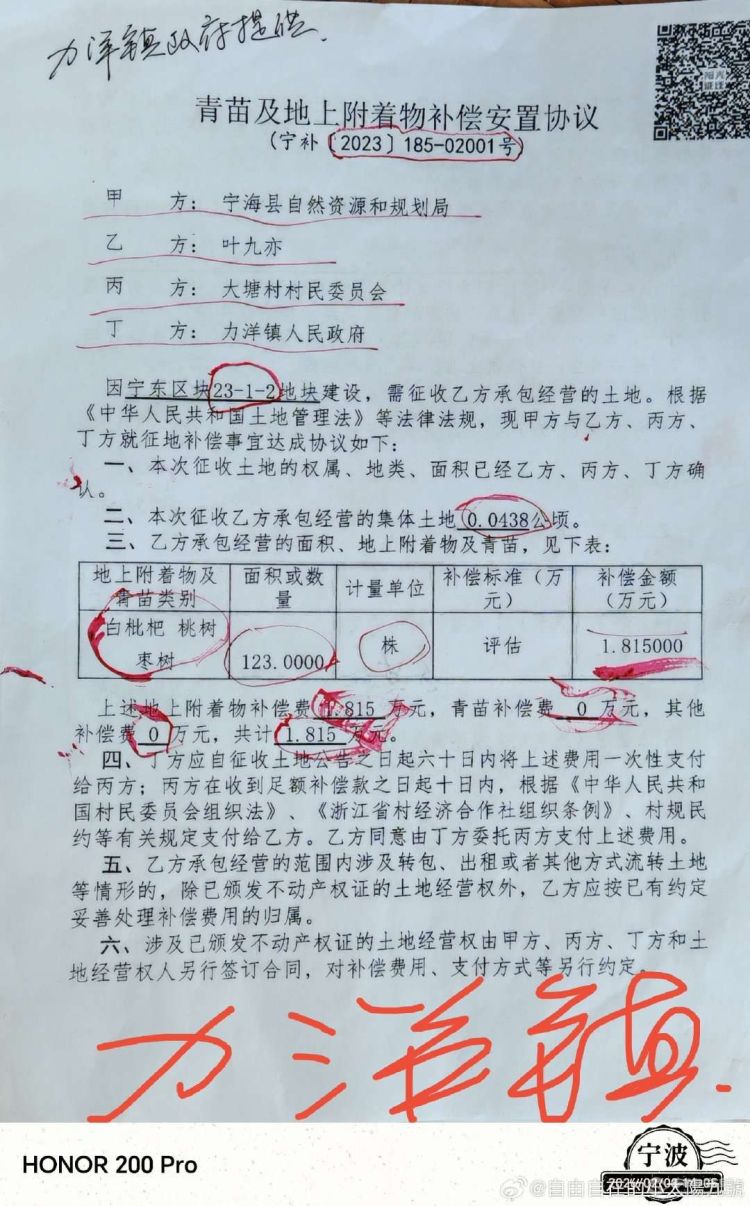 力洋镇政府提供.
青苗及地上附着物补偿安置协议
(宁补〔2023〕185-02001号)
甲 方: 宁海县自然资源和规划局
乙 方: 叶九亦
丙 方: 大塘村村民委员会
丁 方: 力洋镇人民政府
因宁东区块23-1-2地块建设,需征收乙方承包经营的土地。根据
《中华人民共和国土地管理法》等法律法规,现甲方与乙方、丙方、
丁方就征地补偿事宜达成协议如下:
一、本次征收土地的权属、地类、面积已经乙方、丙方、丁方确
认。
二、本次征收乙方承包经营的集体土地0.0438公顷。
三、乙方承包经营的面积、地上附着物及青苗,见下表:
地上附着物及青苗类别 面积或数量 计量单位 补偿标准(万元) 补偿金额(万元)
白枇杷 桃树 枣树 123.0000 株 评估 1.815000
上述地上附着物补偿费1.815万元,青苗补偿费0万元,其他
补偿费0万元,共计1.815万元。
四、丁方应自征收土地公告之日起六十日内将上述费用一次性支付
给丙方;丙方在收到足额补偿款之日起十日内,根据《中华人民共和
国村民委员会组织法》、《浙江省村经济合作社组织条例》、村规民
约等有关规定支付给乙方。乙方同意由丁方委托丙方支付上述费用。
五、乙方承包经营的范围内涉及转包、出租或者其他方式流转土地
等情形的,除已颁发不动产权证的土地经营权外,乙方应按已有约定
妥善处理补偿费用的归属。
六、涉及已颁发不动产权证的土地经营权由甲方、丙方、丁方和土
地经营权人另行签订合同,对补偿费用、支付方式等另行约定。
力洋镇.
HONOR 200 Pro
宁波